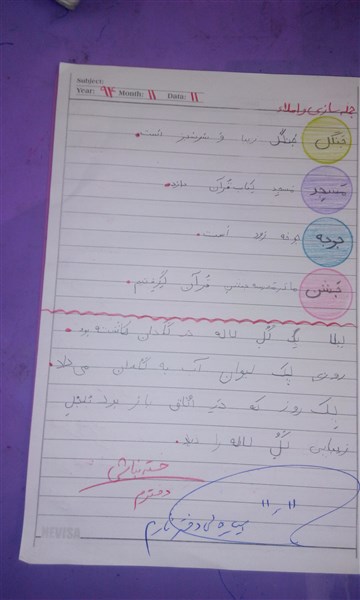 Subject:
Year: 94 Month: 11 Date: 11
جمله سازی و املاء
جنگل جنگل زیبا و سرسبز است.
مسجد مسجد کتاب قرآن دارد.
جوجه جوجه زرد است.
جشن ما در مدرسه جشن قرآن گرفتیم.
لیلا یک گل لاله در گلدان کاشته بود.
روزی یک لیوان آب به گلدان می داد.
یک روز که در اتاق باز بود
زیبایی گل لاله را دید.
خسته نباشی
دخترم
NEVISA